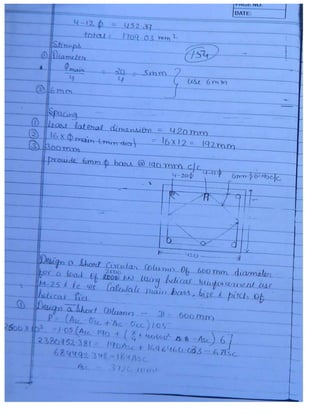 PAGE NO.
DATE:
4-12 φ = 452.39
total = 1709.03 mm²
154
Stirrups
① Diameter
φmain/4 = 20/4 = 5mm
② 6mm
use 6mm
Spacing
① Least lateral dimension = 420mm
② 16×φmain (min dia) = 16×12 = 192mm
③ 300mm
provide 6mm φ bars @ 190mm c/c
4-20φ
420
Design a Short Circular column of 600mm diameter
for a load of 2500 kN using helical reinforcement use
M-25 & Fe Calculate main bars, size & pitch of
helical ties
① Design a Short column - D = 600mm
P = (Asc σsc + Ac σcc) 1.05
2500×10³ = 1.05 (Asc 190 + (π/4 × 600² - Asc) 6)
2380952.381 = 190Asc + 1696460.033 - 6Asc
684492.348 = 184Asc